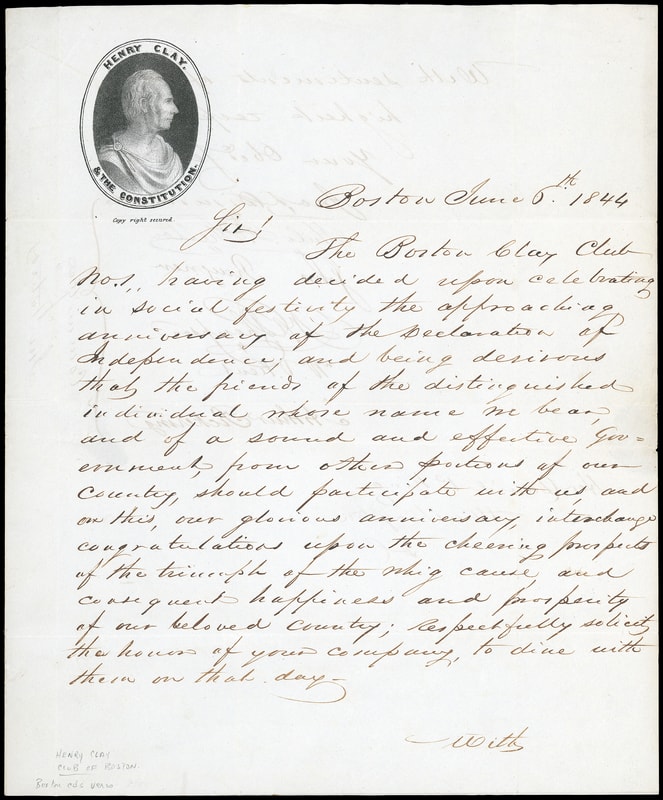 HENRY CLAY.
& THE CONSTITUTION.
Copy right secured.
Boston June 6th. 1844
Sir!
The Boston Clay Club
No. 1, having decided upon celebrating
in social festivity the approaching
anniversary of the Declaration of
Independence, and being desirous
that the friends of the distinguished
individual whose name we bear,
and of a sound and effective Gov=
ernment, from other portions of our
country, should participate with us and
on this, our glorious anniversary, interchange
congratulations upon the cheering prospects
of the triumph of the Whig cause and
consequent happiness and prosperity
of our beloved country; respectfully solicit
the honor of your company, to dine with
them on that day—
With
HENRY CLAY
CLUB OF BOSTON.
Boston
verso
With sentiments
highest
Your Obt